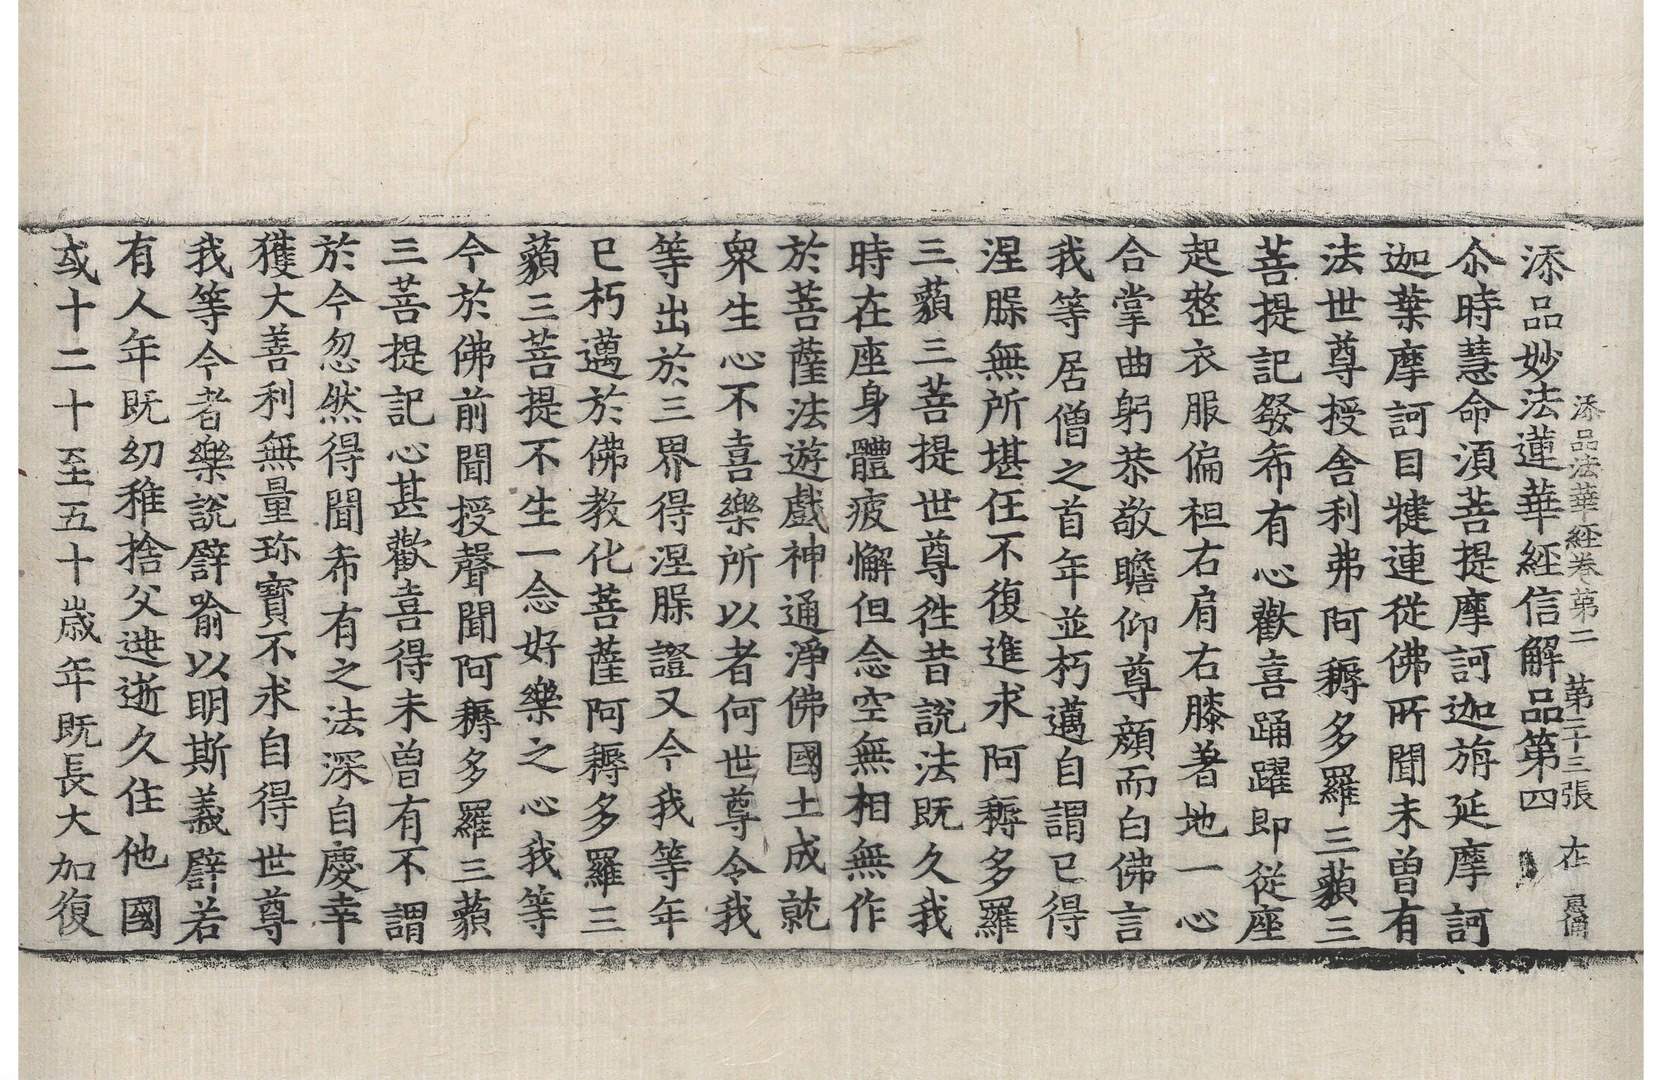 添品法華經卷第二 第二十三張 在
添品妙法蓮華經信解品第四
尒時慧命湏菩提摩訶迦旃延摩訶
迦葉摩訶目犍連從佛所聞未曾有
法世尊授舍利弗阿耨多羅三藐三
菩提記發希有心歡喜踊躍即從座
起整衣服偏袒右肩右膝著地一心
合掌曲躬恭敬瞻仰尊顏而白佛言
我等居僧之首年並朽邁自謂已得
涅槃無所堪任不復進求阿耨多羅
三藐三菩提世尊徃昔說法既久我
時在座身體疲懈但念空無相無作
於菩薩法遊戲神通淨佛國土成就
衆生心不喜樂所以者何世尊令我
等出於三界得涅槃證又今我等年
已朽邁於佛教化菩薩阿耨多羅三
藐三菩提不生一念好樂之心我等
今於佛前聞授聲聞阿耨多羅三藐
三菩提記心甚歡喜得未曾有不謂
於今忽然得聞希有之法深自慶幸
獲大善利無量珎寶不求自得世尊
我等今者樂說譬喻以明斯義譬若
有人年既幼稚捨父逃逝久住他國
或十二十至五十歲年既長大加復